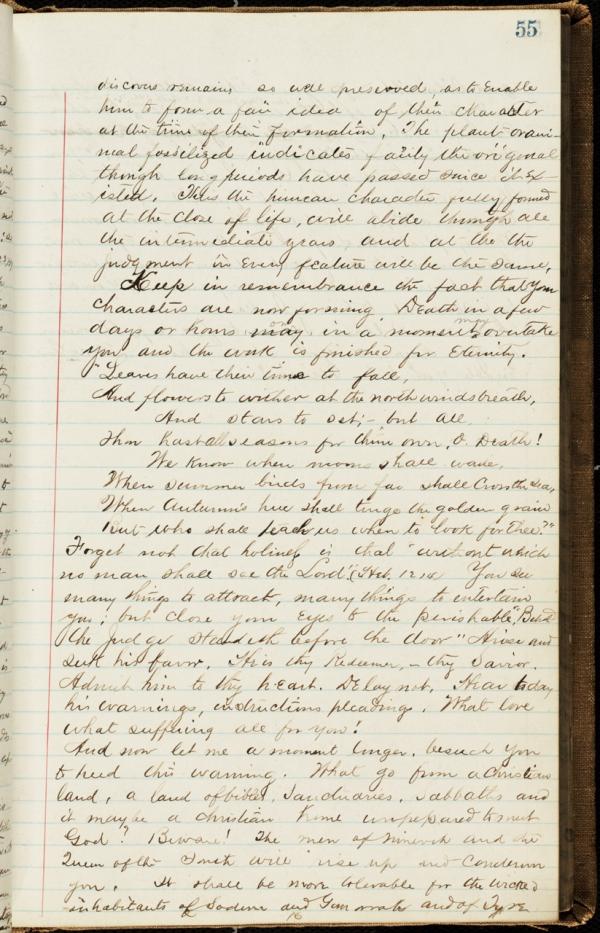 55
discovers remains so well preserved, as to enable
him to form a fair idea of their character
at the time of their formation. The plant or ani-
mal fossilized indicates fairly the origonal
though long periods have passed since it ex-
isted. Thus the human character fully formed
at the close of life, will abide through all
the intermediate years and at the the
judgment in every feature will be the same,
Keep in remembrance the fact that your
characters are now forming. Death in a few
days or hours may in a moment may overtake
you and the work is finished for Eternity.
"Leaves have their time to fall,
And flowers to wither at the north winds breath,
And stars to set; - but all
Thou hast all seasons for thine own, O, Death!
We know when moons shall wane,
When summer birds from far shall Cross the sea,
When Autumn's hue shall tinge the golden grain
But who shall teach us when to look for thee?"
Forget not that holiness is that "without which
no man shall see the Lord" Heb, 12 14 You see
many things to attract, many things to entertain
you; but close your Eyes to the perishable, "Behold
the judge standeth before the door" Arise and
seek his favor. He is thy Redeemer, - thy Savior.
Admit him to thy heart. Delay not. Hear today
his warnings, instructions pleadings. What love
what suffering all for you!
And now let me a moment linger, beseech you
to heed this warning. What go from a Christian
land, a land of bibles, Sanctuaries, Sabbaths and
it may be a Christian home unprepared to meet
God? Beware! The men of Nineveh and the
Queen of the South will rise up and condemn
you. It shall be more tolerable for the wicked
inhabitants of Sodom and Gomorrah and of Tyre